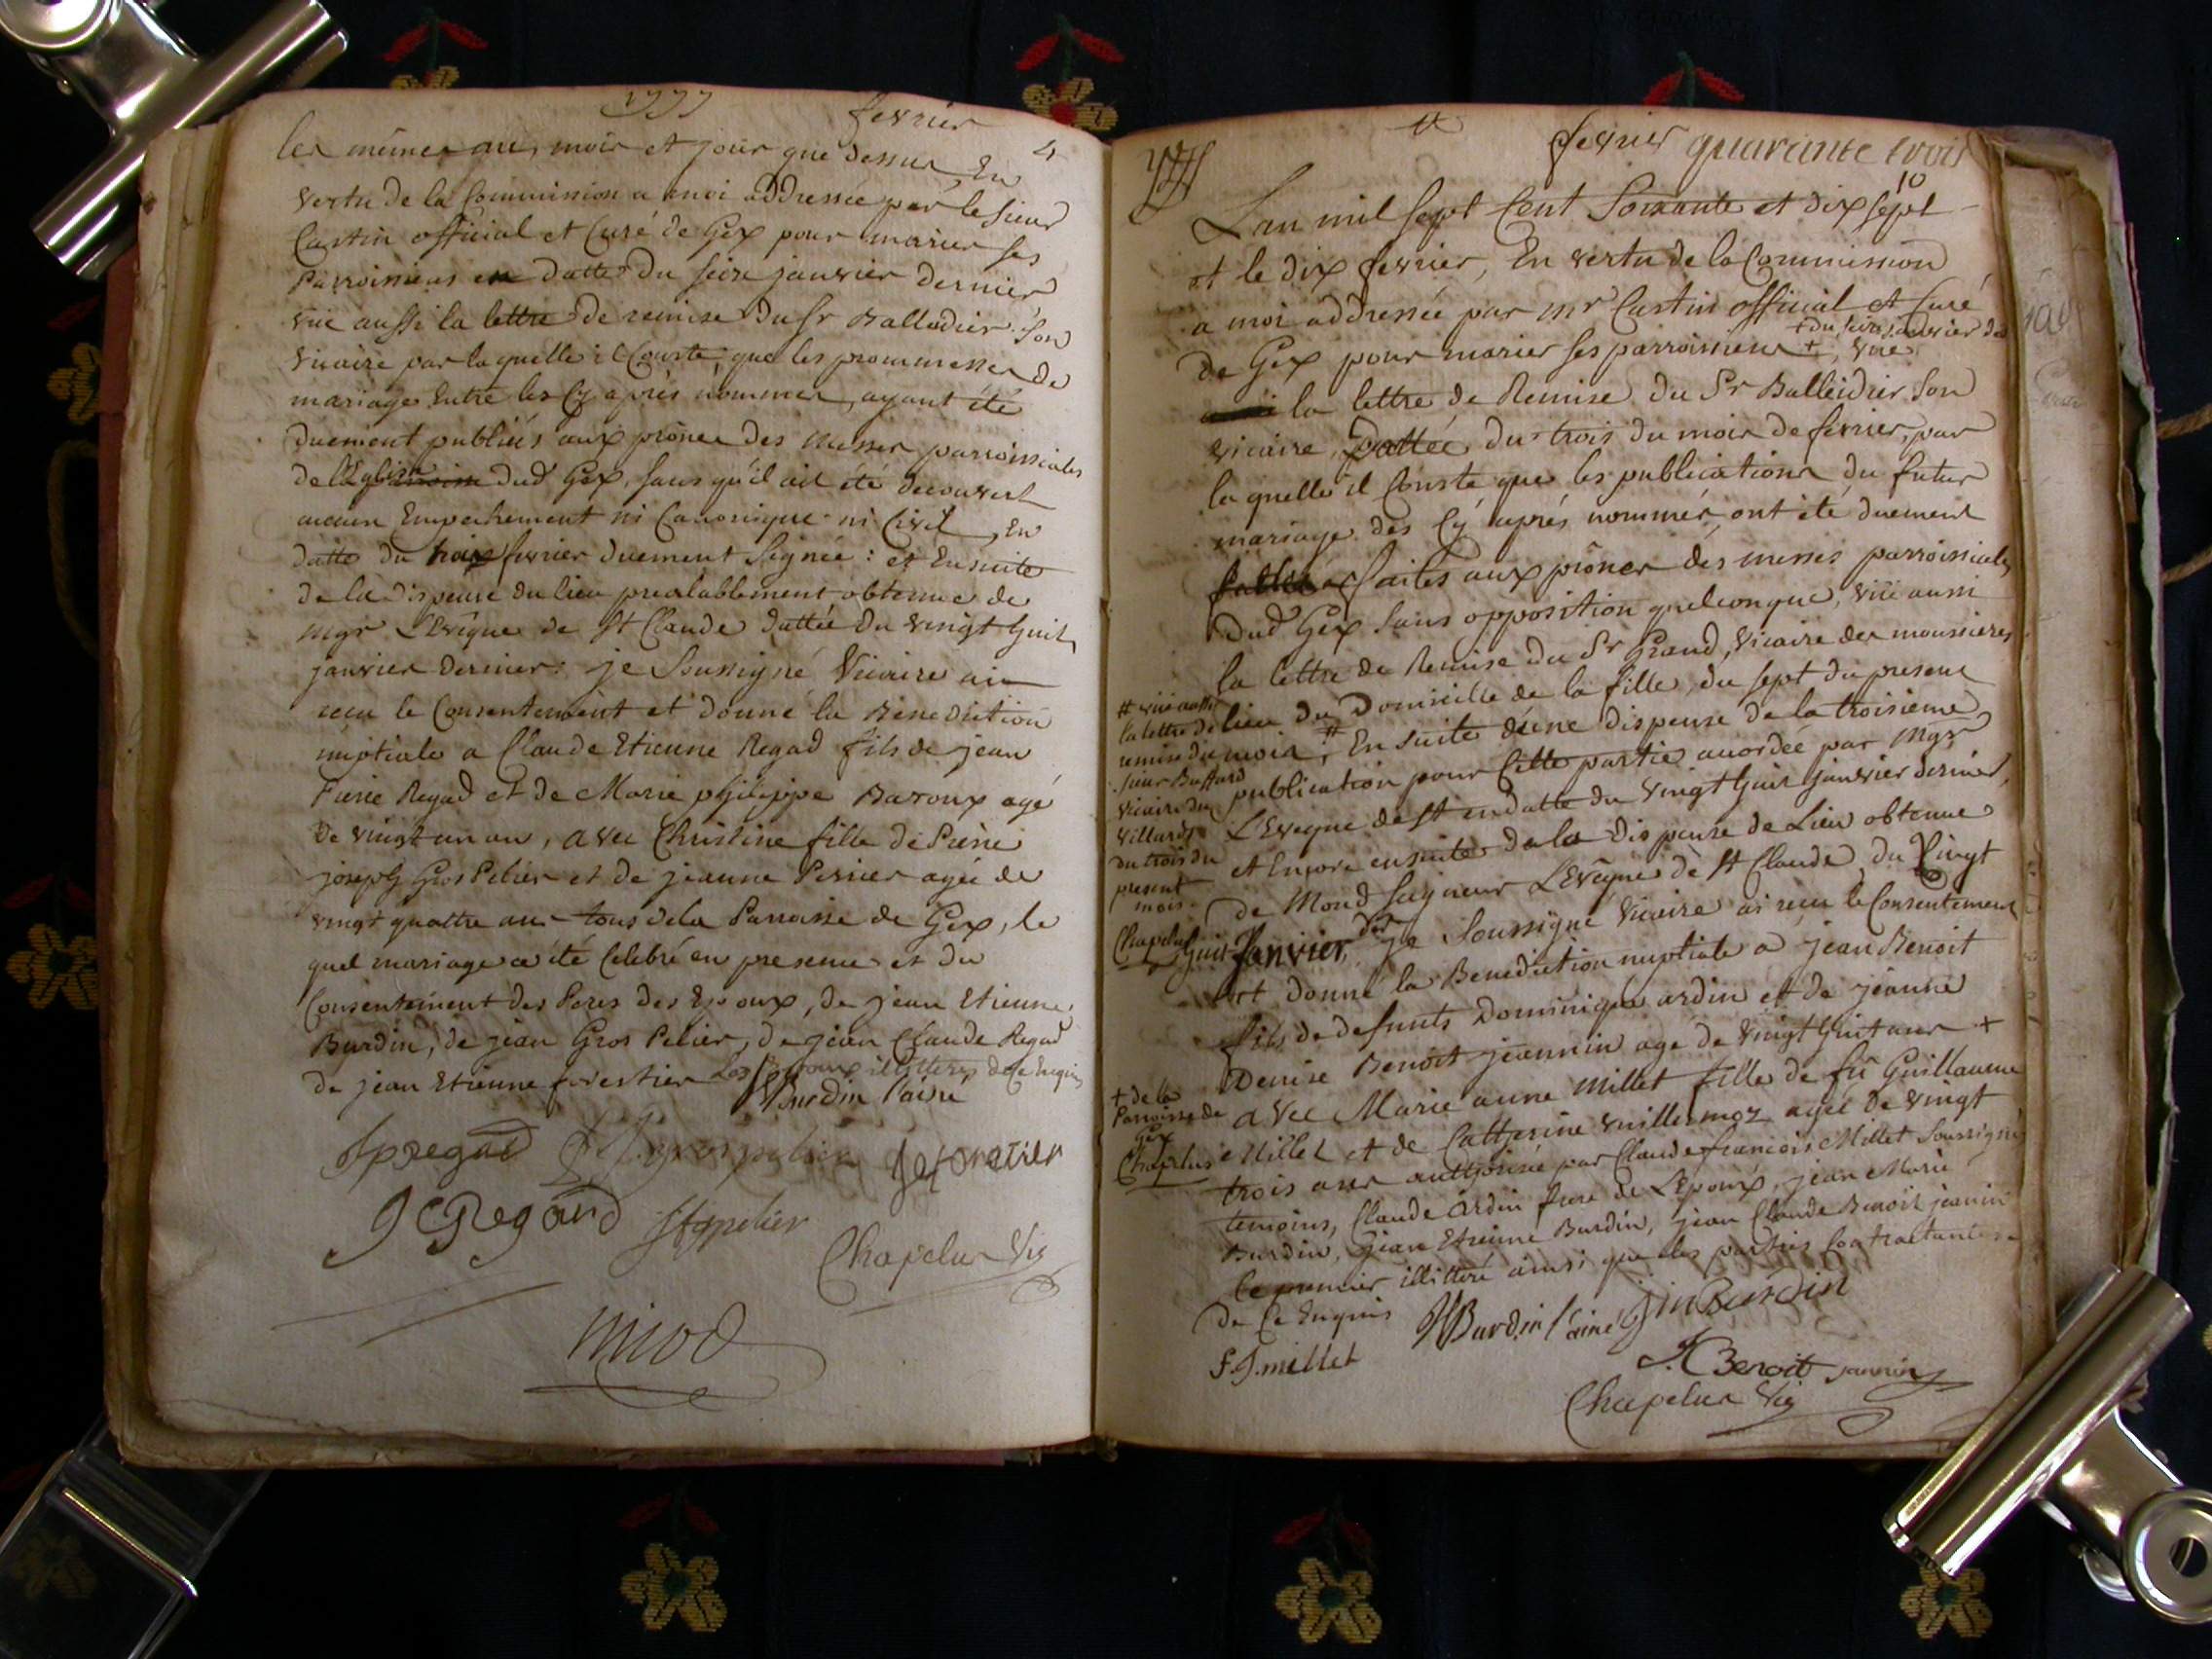 1777 fevrier
4
les mêmes an, mois et jour que dessus, En
vertu de la Commission a moi addressée par le sieur
Castin official et Curé de Gex pour marier ses
Parroissiens en datte du seize janvier dernier
vüe aussi la lettre de remise du Sr Balledier son
vicaire par laquelle il Conste, que les prommesses de
mariage Entre les Cy après nommés, ayant été
duement publiées aux prônes des messes parroissiales
de l'Eglise dud Gex, sans qu'il ait été decouvert
aucun Empechement ni Canonique ni Civil, En
datte du trois fevrier duement Signée : et Ensuite
de la dispense du lieu prealablement obtenue de
mgr L'Evêque de St Claude dattée du vingt huit
janvier dernier : je Soussigné Vicaire ai
reçu le Consentement et donné la Benediction
nuptiale a Claude Etienne Regad fils de jean
Pierre Regad et de Marie philippe Baroux agé
de vingt un an, avec Christine fille de Pierre
joseph Gros Pelier et de jeanne Perrier agée de
vingt quattre ans tous de la Parroisse de Gex, le
quel mariage a été Celebré en presence et du
Consentement des Peres des Epoux, de jean Etienne
Burdin, de jean Gros Pelier, de jean Claude Regad
de jean Etienne forestier Les Epoux illitterés de ce Enquis
Burdin l'ainé
jp regad
jeforetier
J C Regard
Chapelus Vic
miod
1777
fevrier quarante trois
10
Lan mil sept Cent Soixante et dix sept
et le dix fevrier, En vertu de la Commission
a moi addressée par mr Castin official et Curé
+ du seize janvier der
de Gex pour marier ses parroissiens +, vüe
la lettre de Remise du Sr Balleidier Son
vicaire, Dattée du trois du mois de fevrier, par
la quelle il Conste que les publications du futur
mariage des Cy après nommés, ont été duement
faites aux prônes des messes parroissiales
dud Gex sans opposition quelconque, vüe aussi
la lettre de Remise du Sr Grand, Vicaire des moussieres
lieu du Domicille de la fille, du sept du present
mois ; # En suite d'une dispense de la troisieme
publication pour Cette partie accordée par Mgr
L'Eveque de St en datte du vingt huit janvier dernier,
et Encore ensuite de la dispense de Lieu obtenue
de Mond Seigneur L'Evêque de St Claude, du Vingt
huit Janvier, der je Soussigné vicaire ai reçu le Consentement
et donné la Benediction nuptiale a jean Benoit
fils de defunts Dominique ardin et de jeanne
Denise Benoit jeannin agé de vingt huit ans +
avec Marie anne Millet fille de fû Guillaume
Millet et de Catherine vuillermoz agée de vingt
trois ans authorisée par Claude francois Millet Soussigné
temoins, Claude Ardin frere de L'Epoux, jean Marie
Burdin, jean Etienne Burdin, jean Claude Benoit jeannin
le premier illitteré ainsi que les parties Contractantes
de Ce Enquis
# vüe aussi
la lettre de
remise du
sieur Buffard
vicaire des
villards
du trois du
present
mois.
Chapelus
+ de la
Parroisse de
Gex
Chapelus
Burdin l'ainé jm Burdin
F. J. millet
J C Benoit jannin
Chapelus Vic